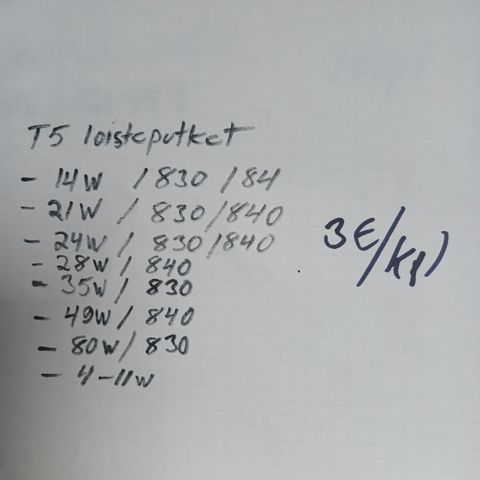 T5 loisteputket
- 14W / 830 / 84
- 21W / 830 / 840
- 24W / 830 / 840
- 28W / 840
- 35W / 830
- 49W / 840
- 80W / 830
- 4-11W
3€/kpl